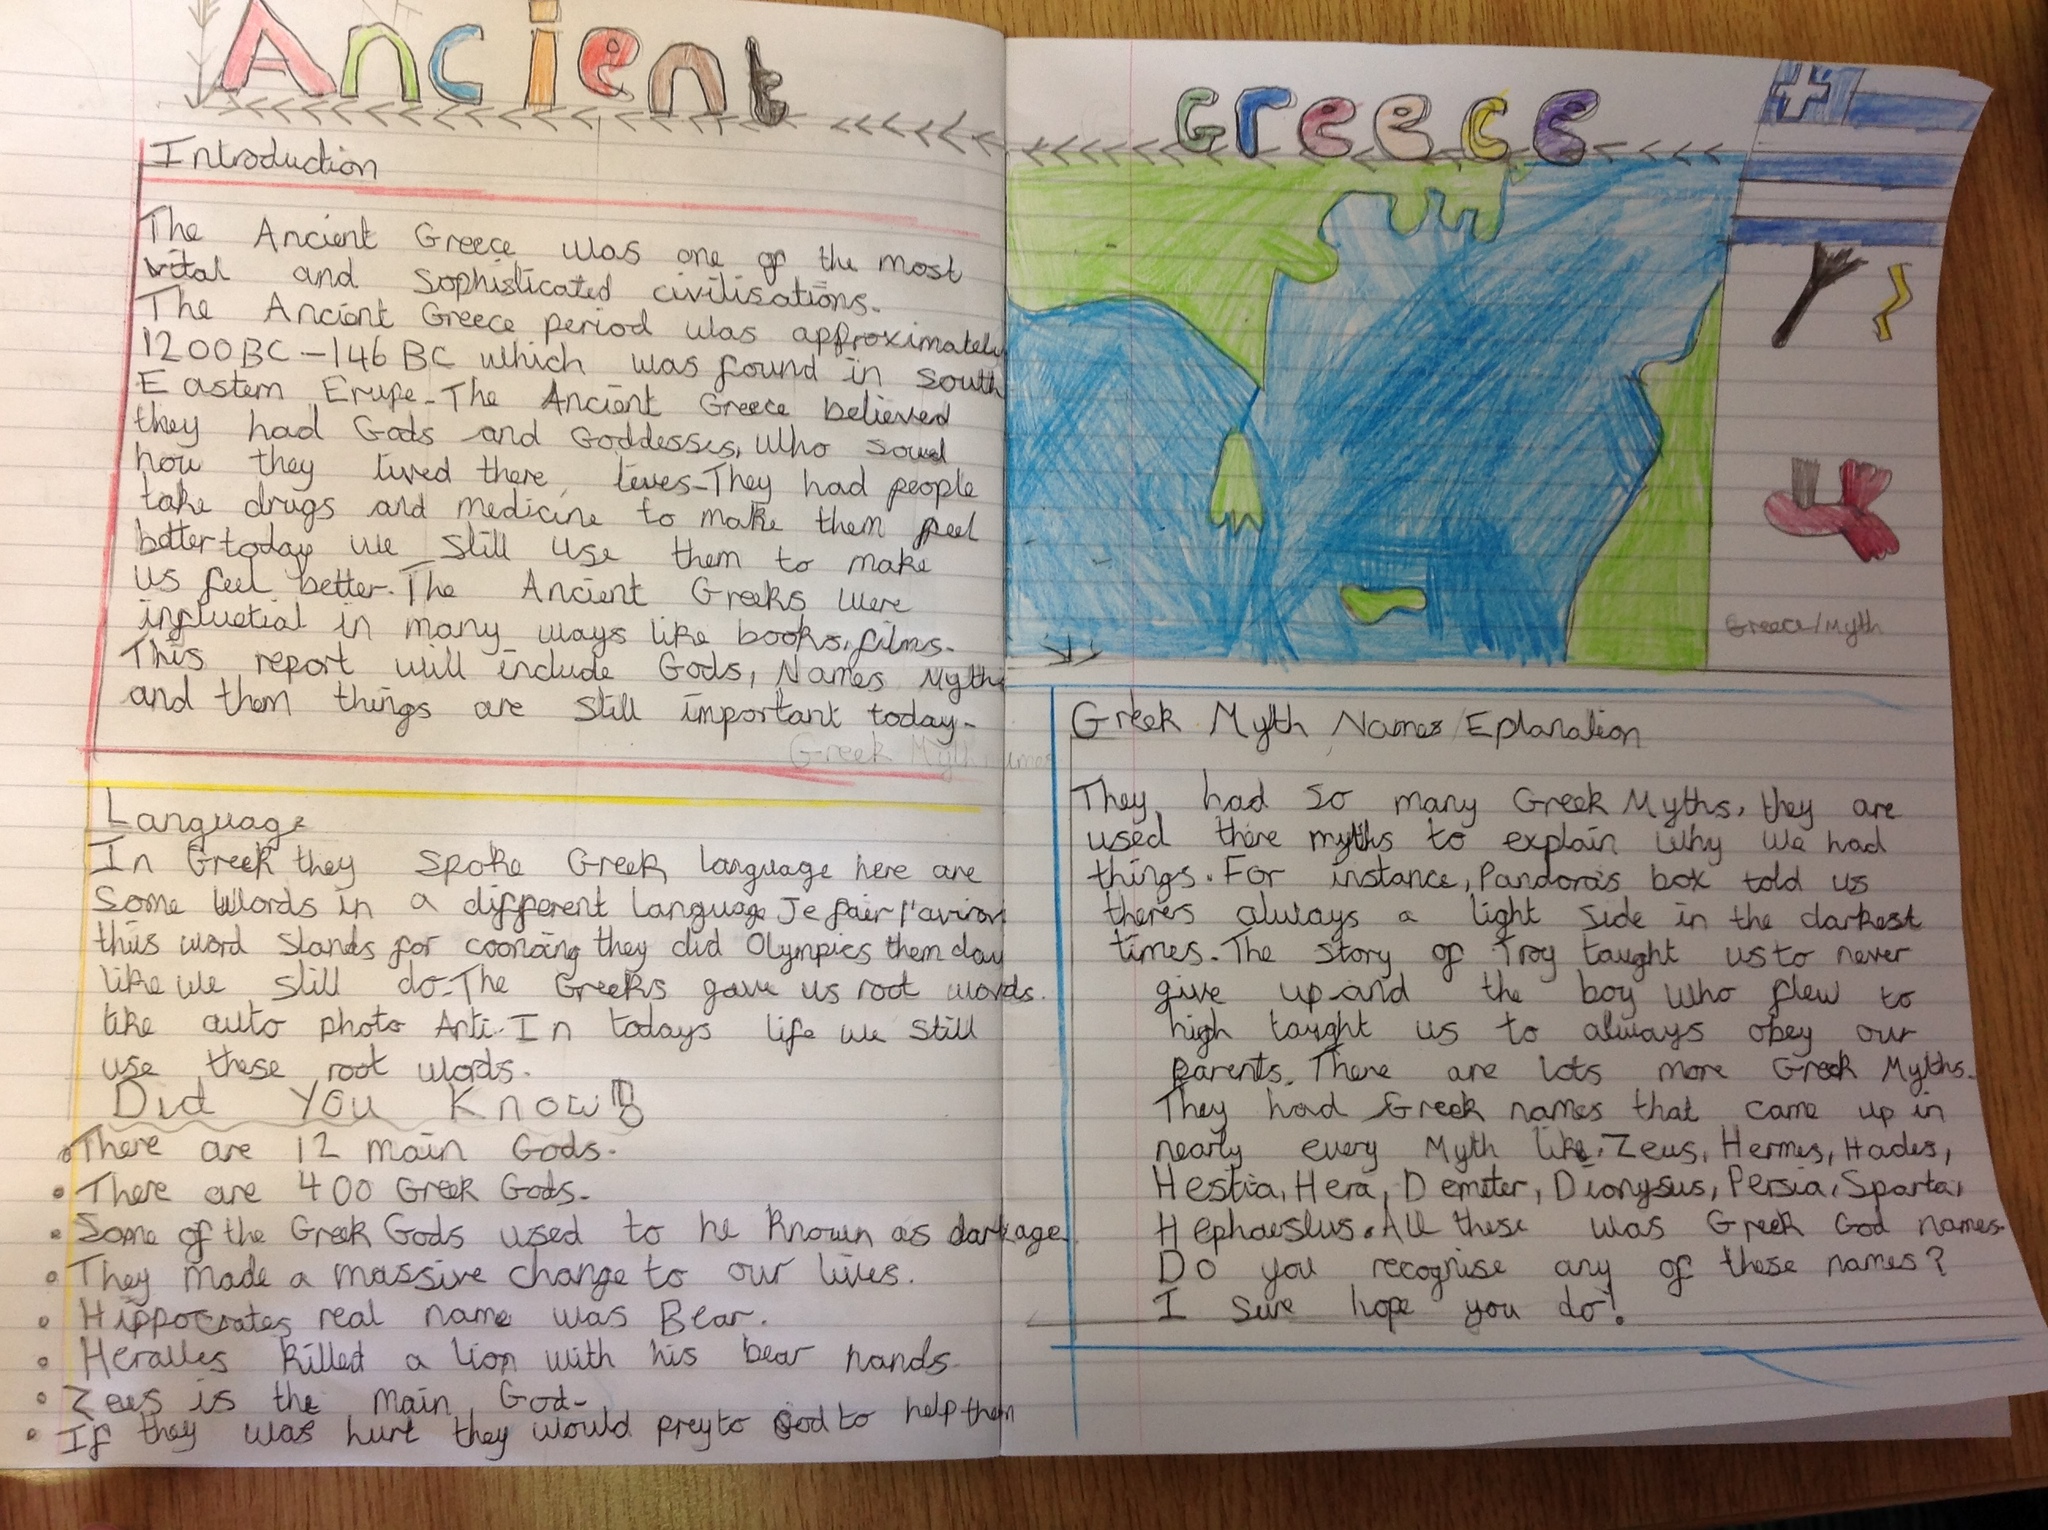 Ancient Greece
Introduction
The Ancient Greece was one of the most
vital and Sophisticated civilisations.
The Ancient Greece period was approximately
1200BC-146BC which was found in South
Eastern Erupe. The Ancient Greece believed
they had Gods and Goddesses, Who
how they lived there lives. They had people
take drugs and medicine to make them feel
better today we still use them to make
us feel better. The Ancient Greeks were
influetial in many ways like books, films.
This report will include Gods, Names Myths
and them things are still important today.
Greek Myth names
Language
In Greek they spoke Greek language here are
Some Words in a different language Je fair l'aviron
this word stands for they did Olympics them day
like we still do. The Greeks gave us root words.
like auto photo Anti. In todays life we still
use these root words.
Did You Know!!
There are 12 main Gods.
There are 400 Greek Gods.
Some of the Greek Gods used to be known as darkage
They made a massive change to our lives.
Hippocrates real name was Bear.
killed a lion with his bear hands.
Zeus is the main God.
If they was hurt they would prey to God to help them
Greece/Myth
Greek Myth Names/Eplanation
They had So many Greek Myths, they are
used there myths to explain why we had
things. For instance, Pandora's box told us
theres always a light side in the darkest
times. The story of Troy taught us to never
give up and the boy who flew to
high taught us to always obey our
parents. There are lots more Greek Myths.
They had Greek names that came up in
nearly every Myth like, Zeus, Hermes, Hades,
Hestia, Hera, Demeter, Dionysus, Persia, Sparta,
Hephaestus. All these was Greek God names
Do you recognise any of these names?
I sure hope you do!